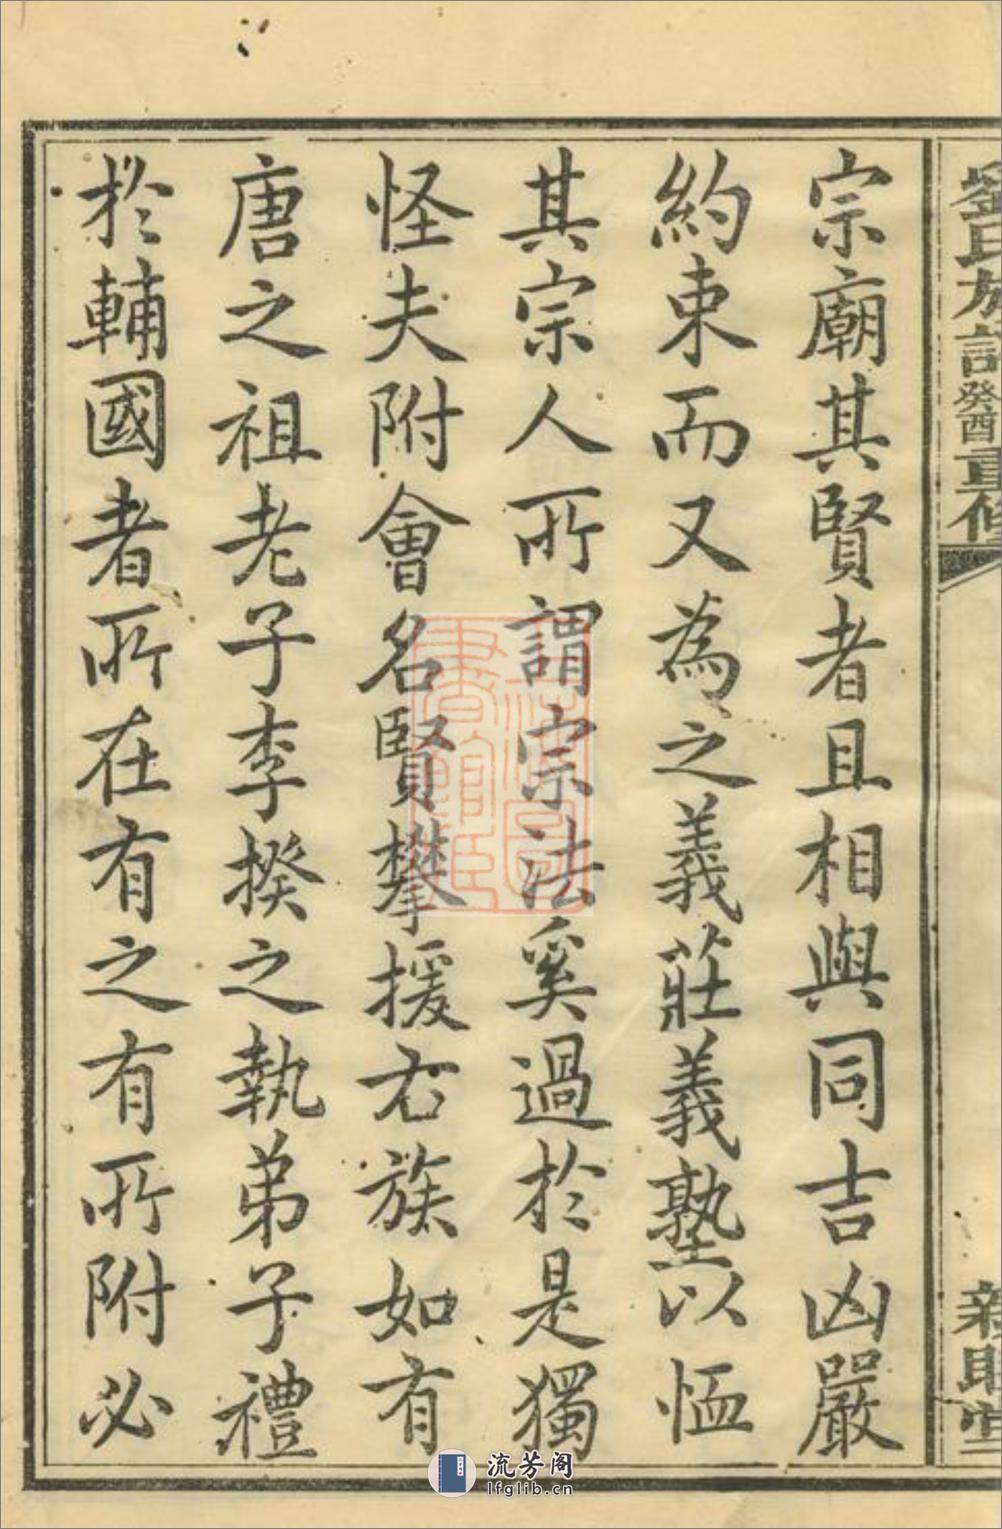 劉氏族譜癸酉重修
宗廟其賢者且相與同吉凶嚴
約束而又為之義莊義塾以恤
其宗人所謂宗法奚過於是獨
怪夫附會名賢攀援右族如有
唐之祖老子李揆之執弟子禮
於輔國者所在有之有所附必
流芳阁
lfglib.cn